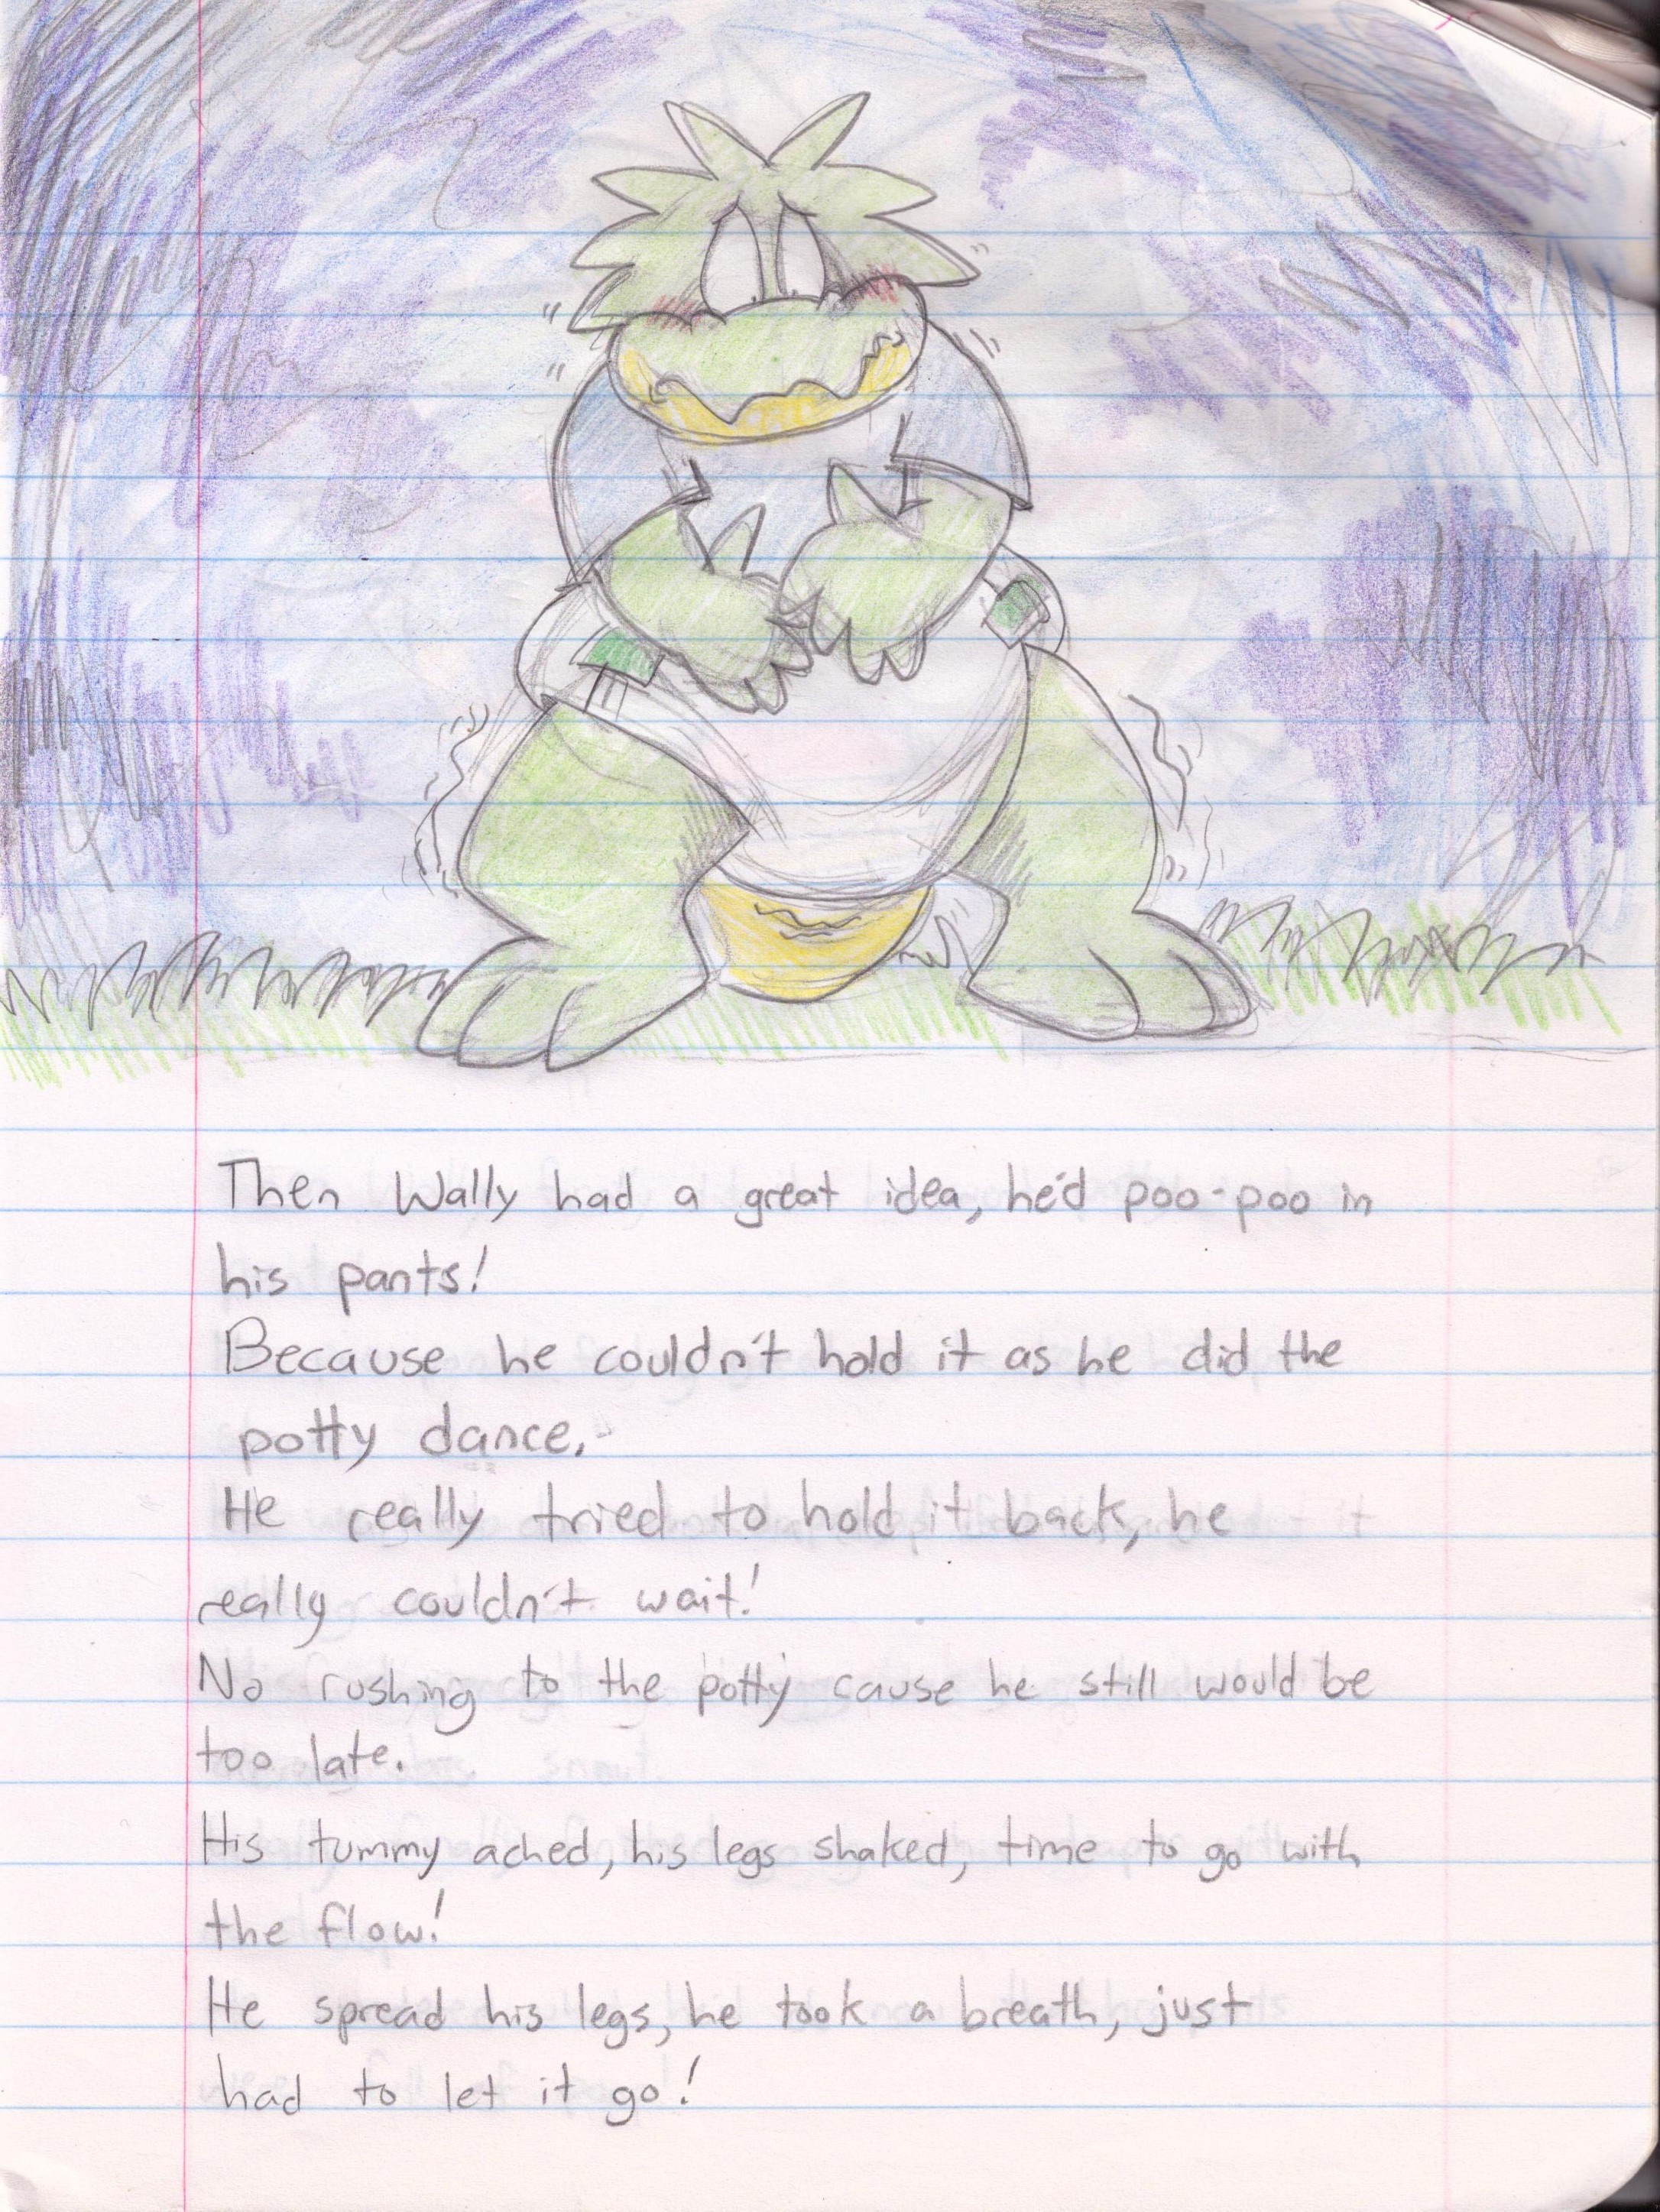 Then Wally had a great idea, he'd poo-poo in
his pants!
Because he couldn't hold it as he did the
potty dance.
He really tried to hold it back, he
really couldn't wait!
No rushing to the potty cause he still would be
too late.
His tummy ached, his legs shaked, time to go with
the flow!
He spread his legs, he took a breath, just
had to let it go!